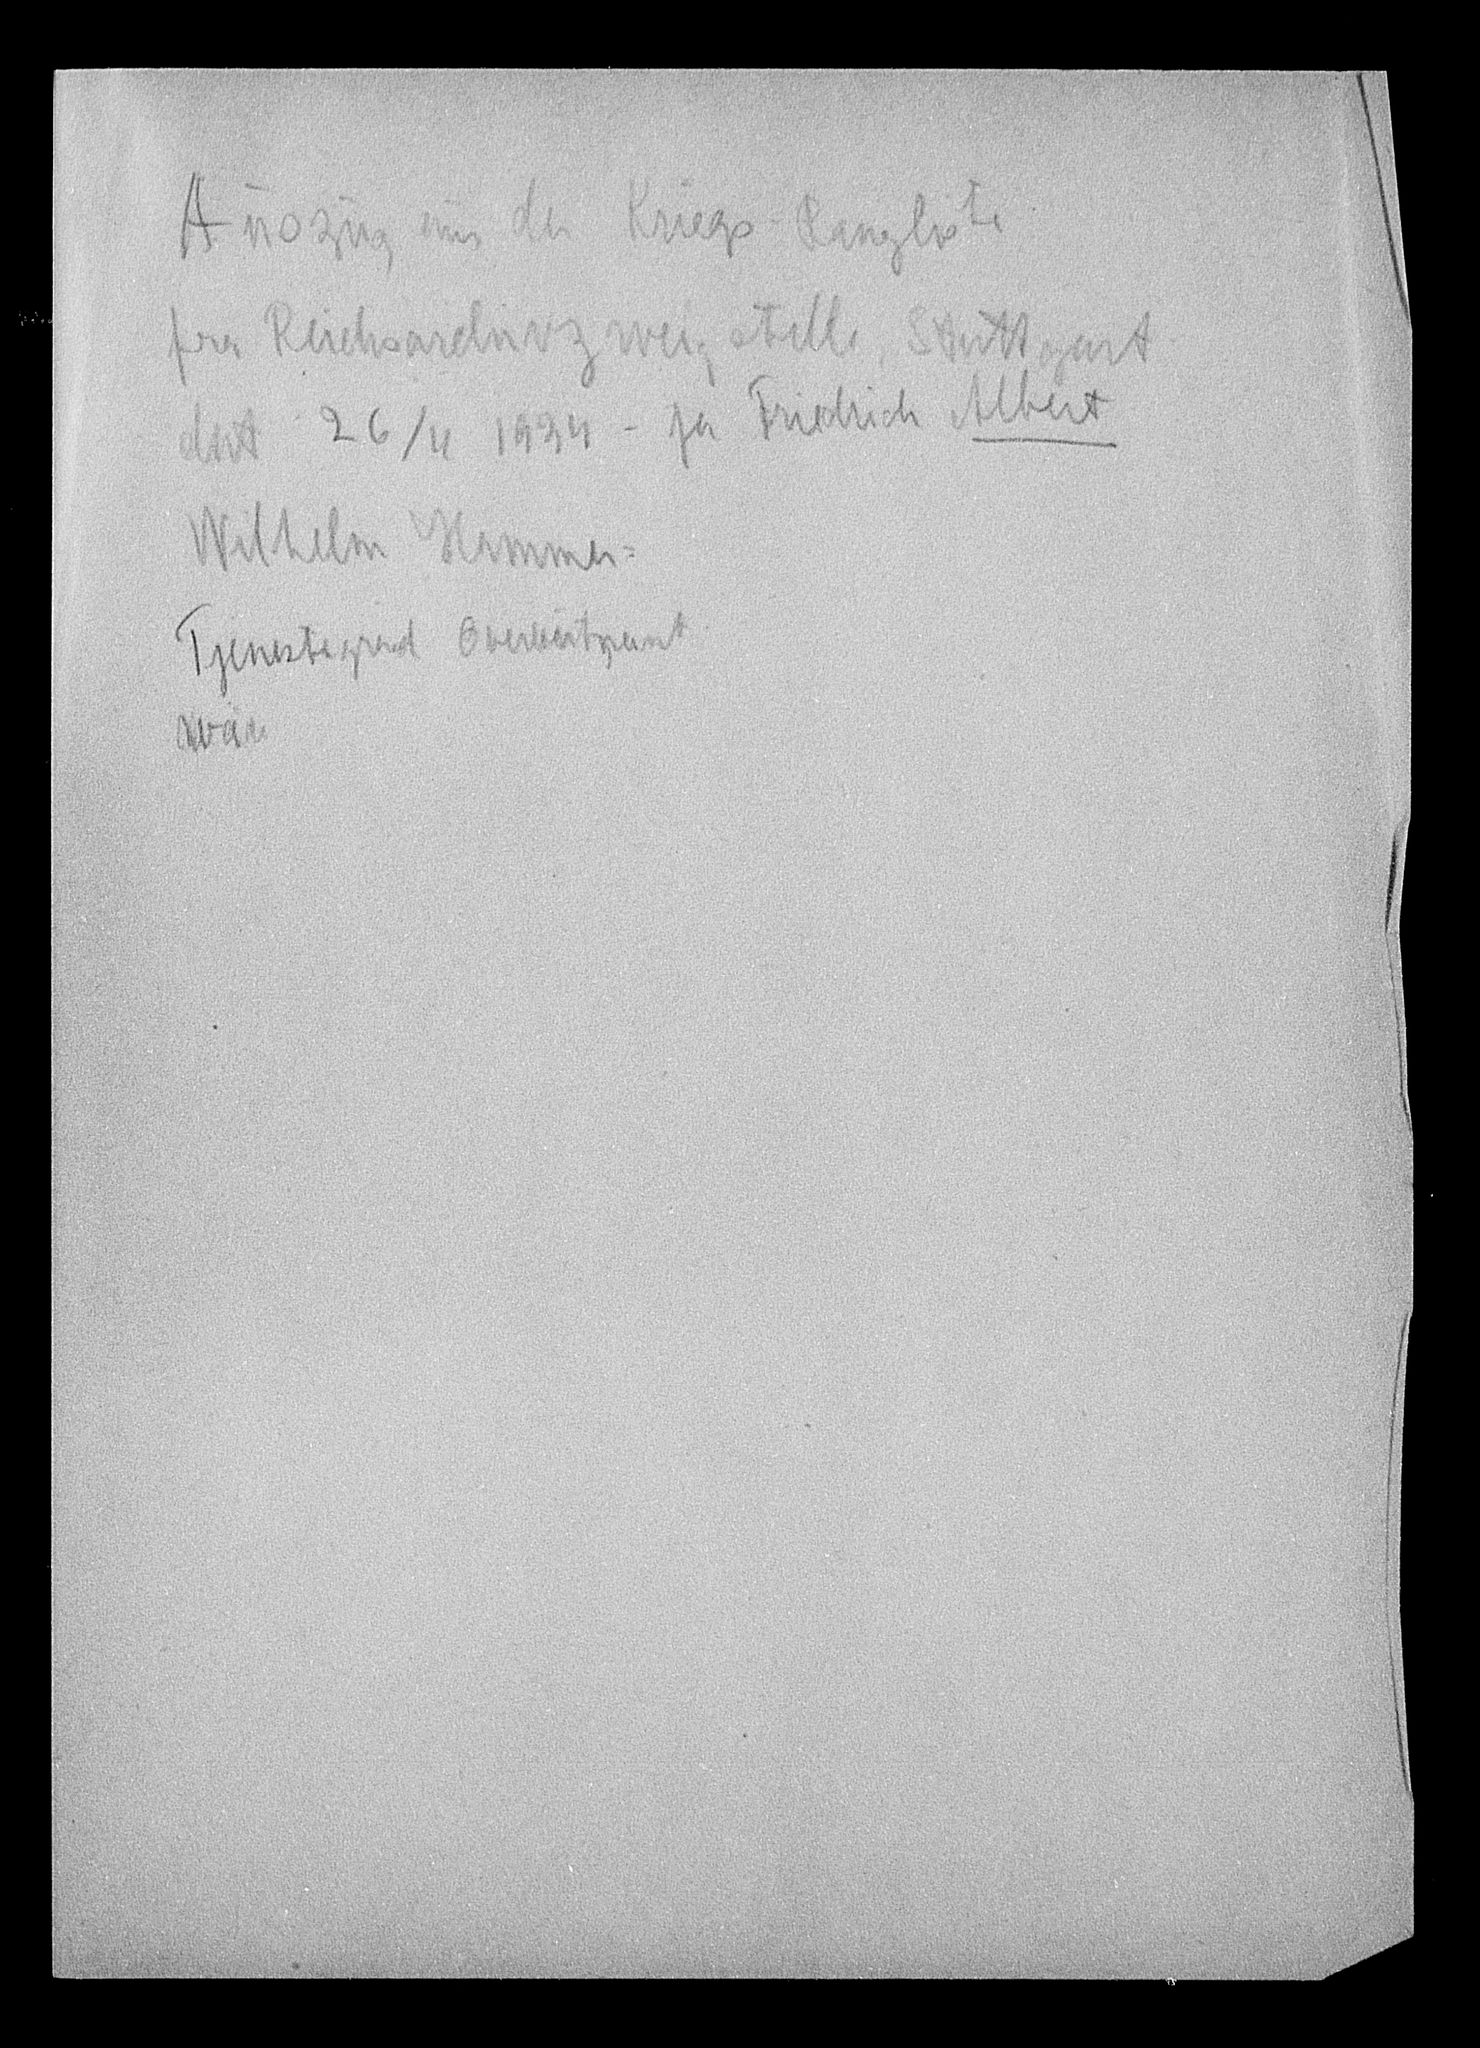 Auszug aus der Kriegs-Rangliste
fra Reichsarchivzweigstelle, Stuttgart
dat 26/4 1934 - for Friedrich Albert
Wilhelm Hammer=
Tjenestegrad Oberleutnant